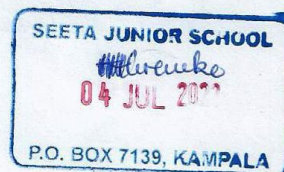 SEETA JUNIOR SCHOOL
04 JUL
P.O. BOX 7139, KAMPALA